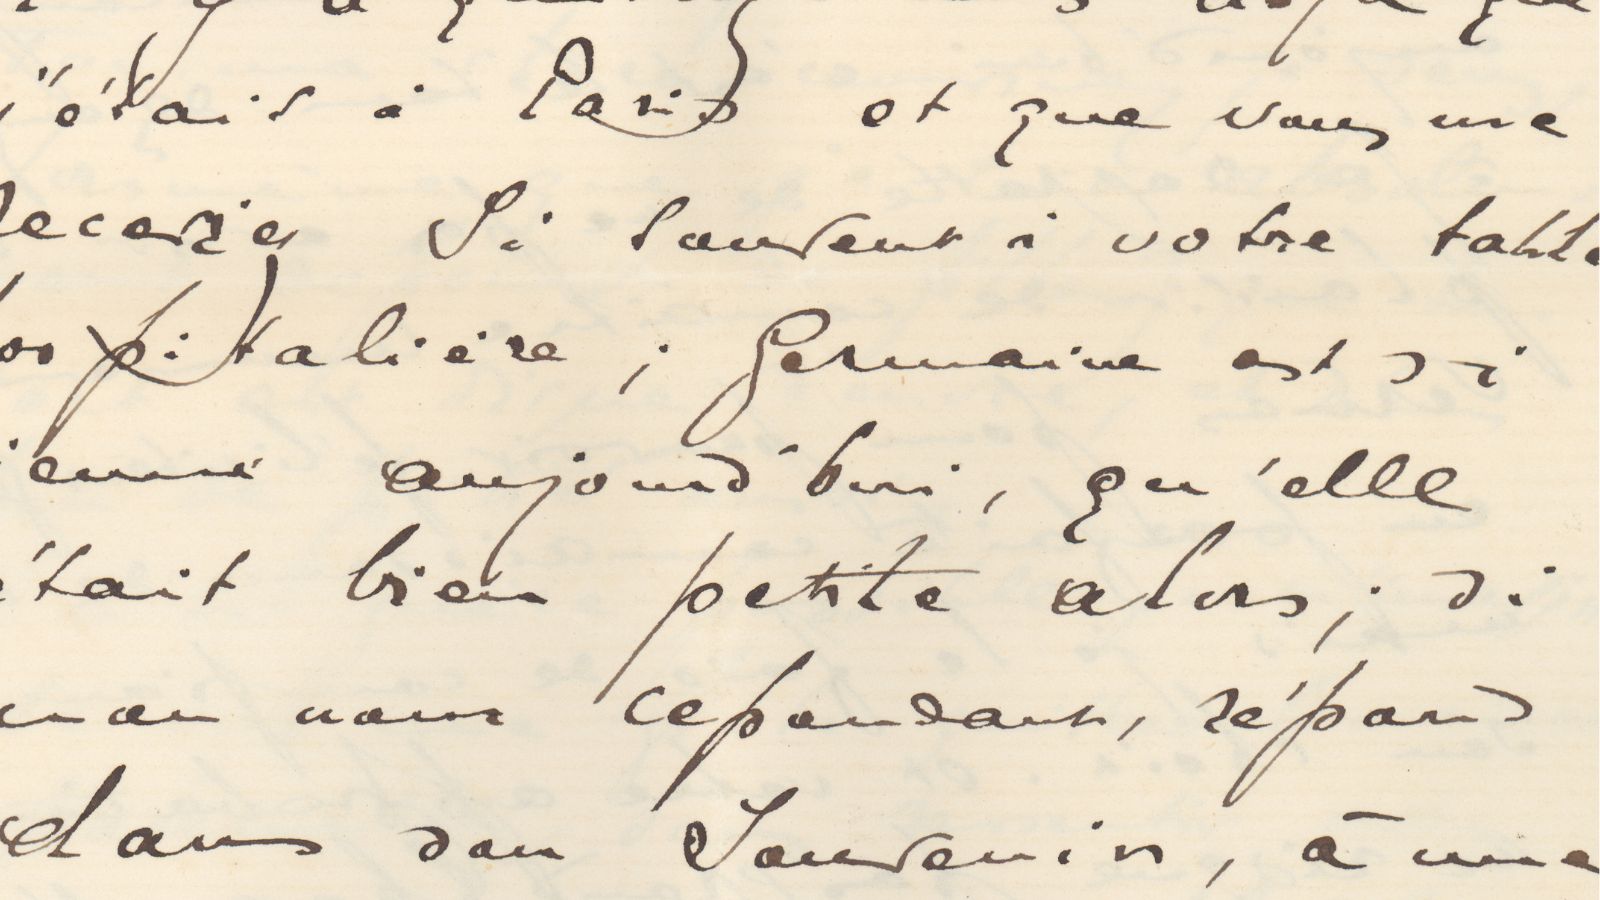 j'étais à Paris et que vous me
receviez si souvent à votre table
hospitalière ; Germaine est si
jeune aujourd'hui, qu'elle
était bien petite alors ; si
mon nom cependant, répond
dans son souvenir, à une